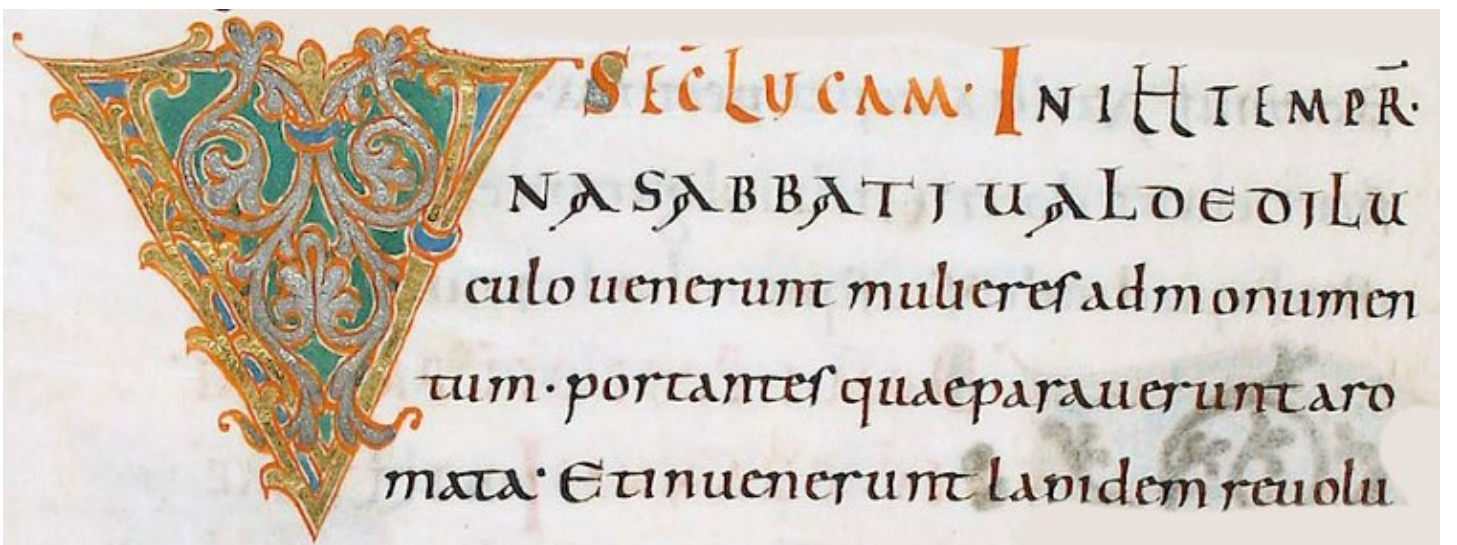 SEC̄ LUCAM· IN ILL TEMPR̄·
VNA SABBATI UALDE DILU
culo uenerunt mulieres ad monumen
tum· portantes quae parauerunt aro
mata· Et inuenerunt lapidem reuolu